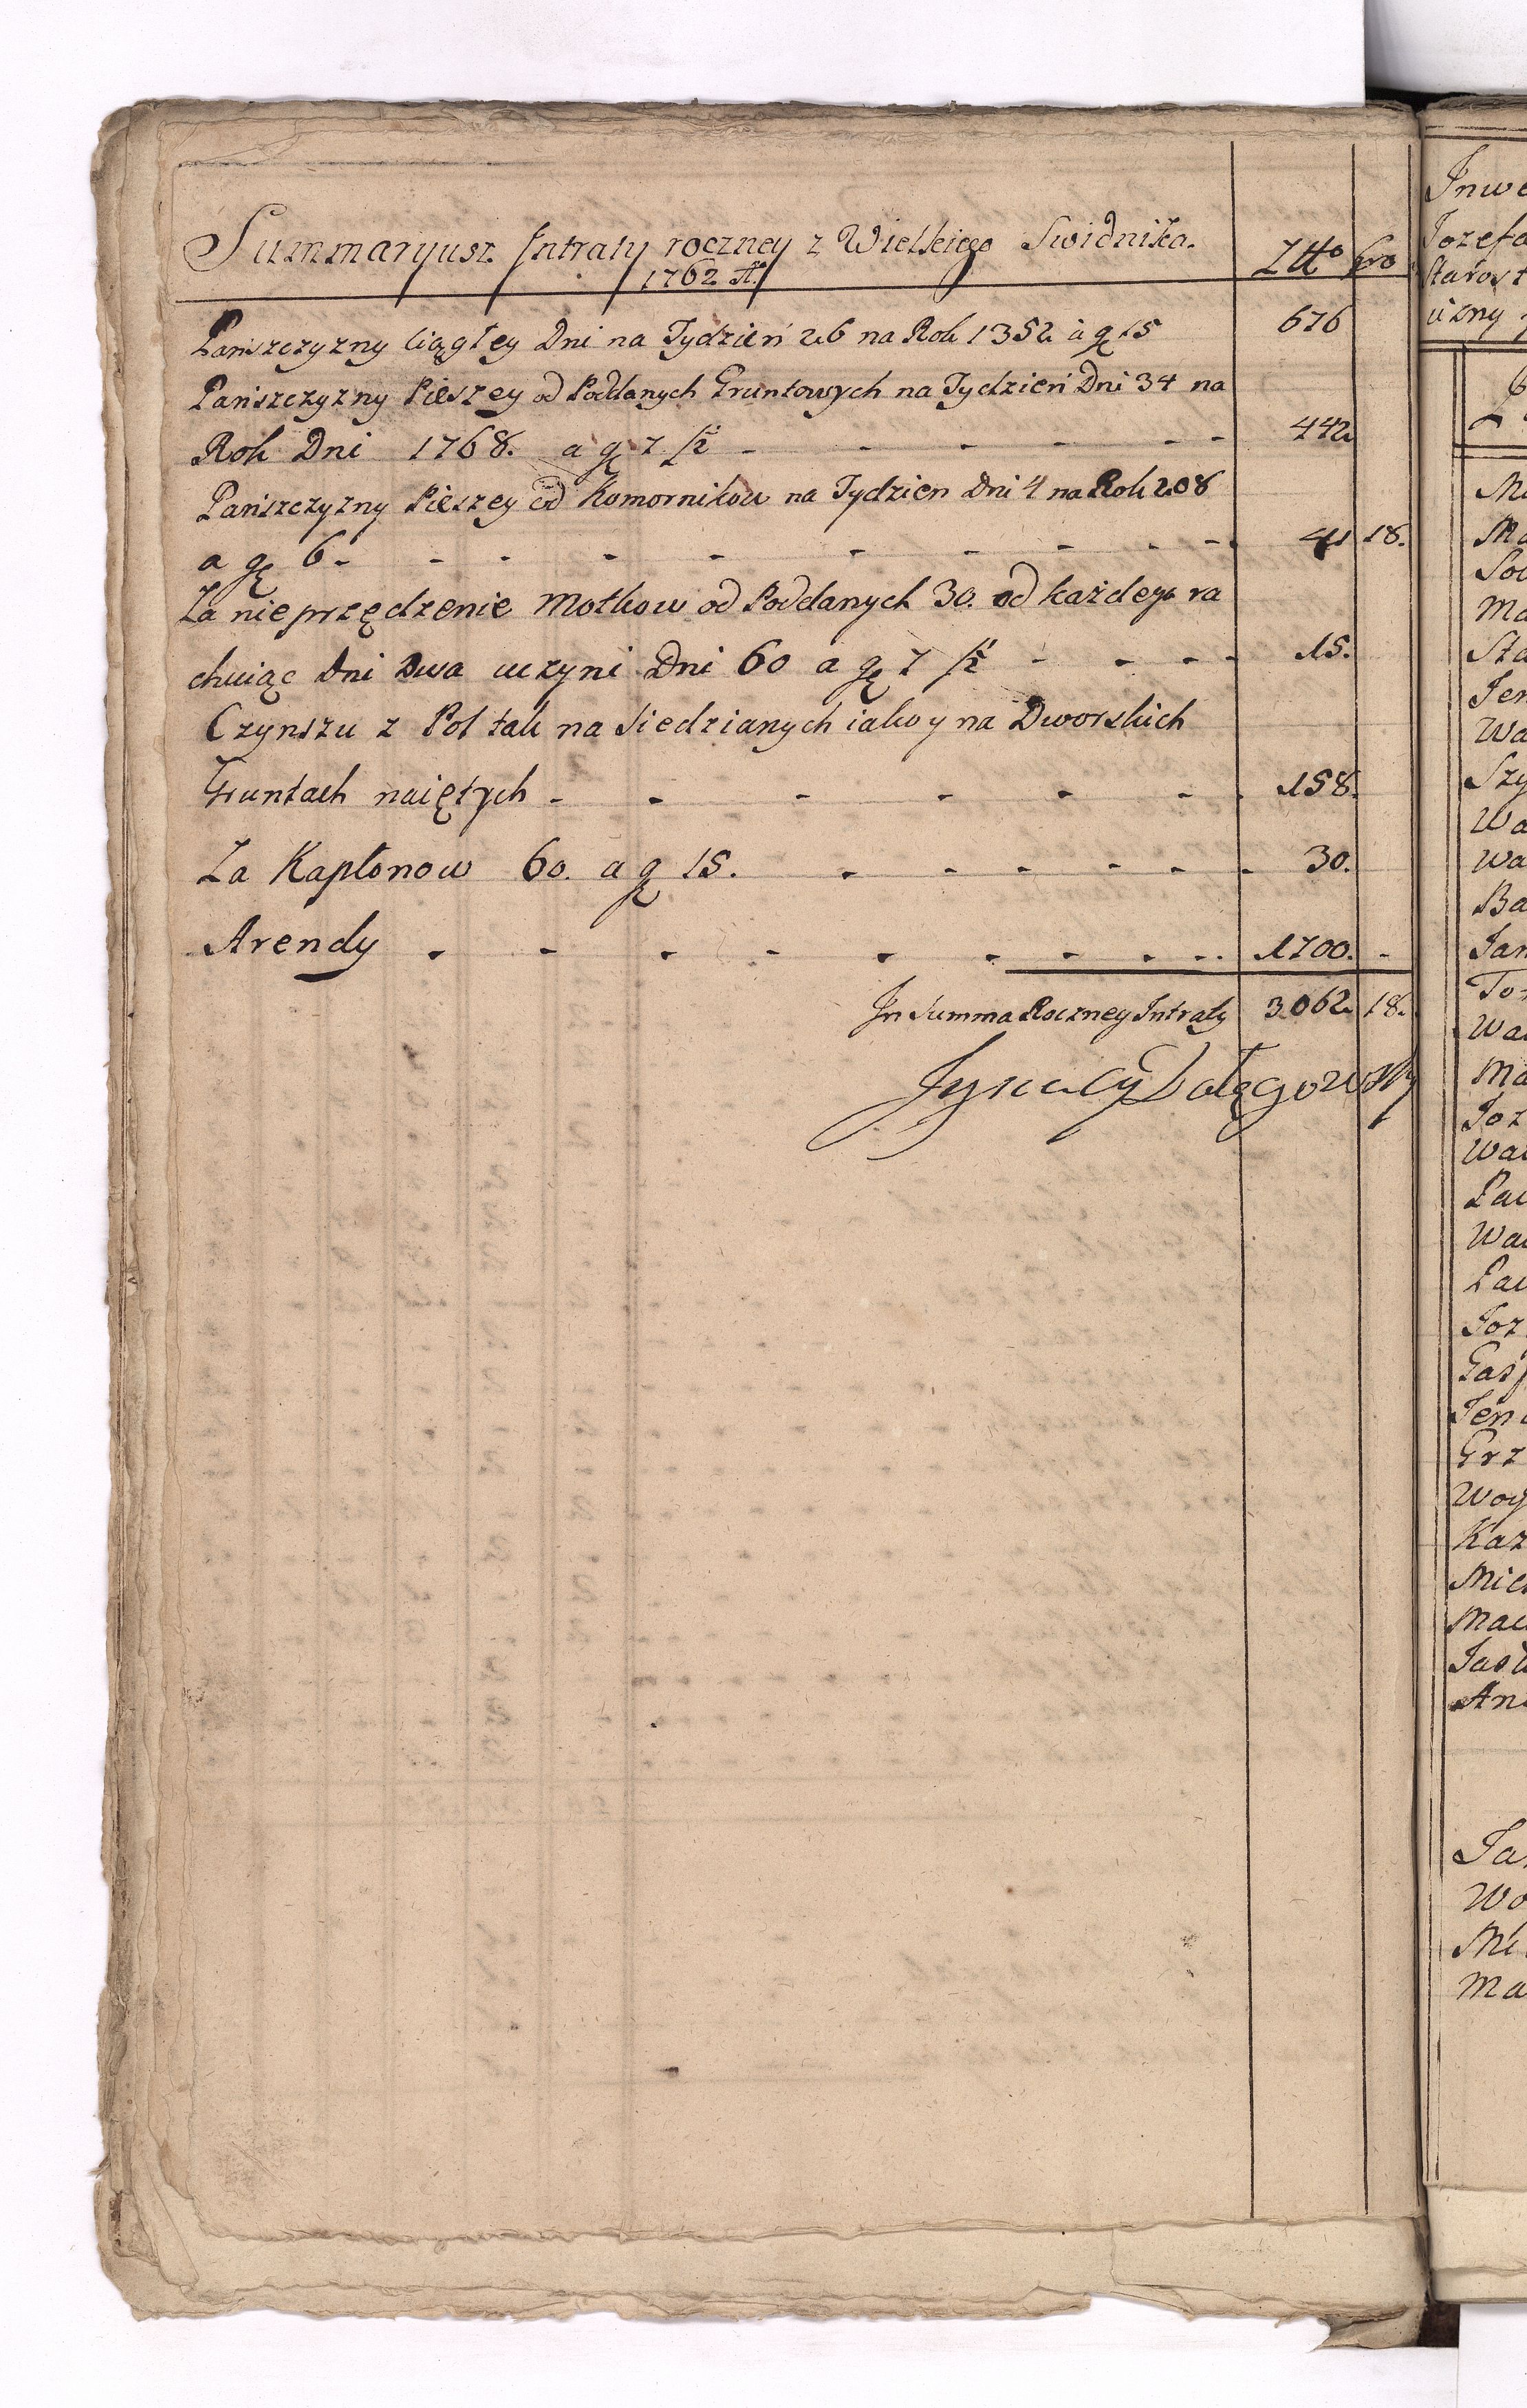 Summaryusz Intraty roczney z Wielkiego Swidnika. Złło gro
1762 Ao
Panszczyzny Ciągłey Dni na Tydzień 26 na Rok 1352 a gę 15 676
Panszczyzny Pieszey od Poddanych Gruntowych na Tydzień Dni 34 na
Rok Dni 1768. a gę 7 1/2 - - - - - 442
Panszczyzny Pieszey od Komornikow na Tydzien Dni 4 na Rok 208
a gę 6 - - - - - - - - - - 41 18.
Za nieprzędzenie Motkow od Poddanych 30. od każdego ra
chuiąc Dni Dwa uczyni Dni 60 a gę 7 1/2 - - - - 15.
Czynszu z Pol tak na Siedzianych iako y na Dworskich
Gruntach naiętych - - - - - - - 158.
Za Kapłonow 60. a gę 15. - - - - - - 30.
Arendy - - - - - - - - - 1700. -
In Summa Roczney Intraty 3062 18.
Jnwe
Jozefa
Starost
Ma
Sta
Jen
Wa
Szy
Wa
Wa
Ba
Jan
Ma
Joz
Wa
Joz
Gas
Grz
Woy
Kaz
Mich
And
Jan
Wo
Mi
Ma